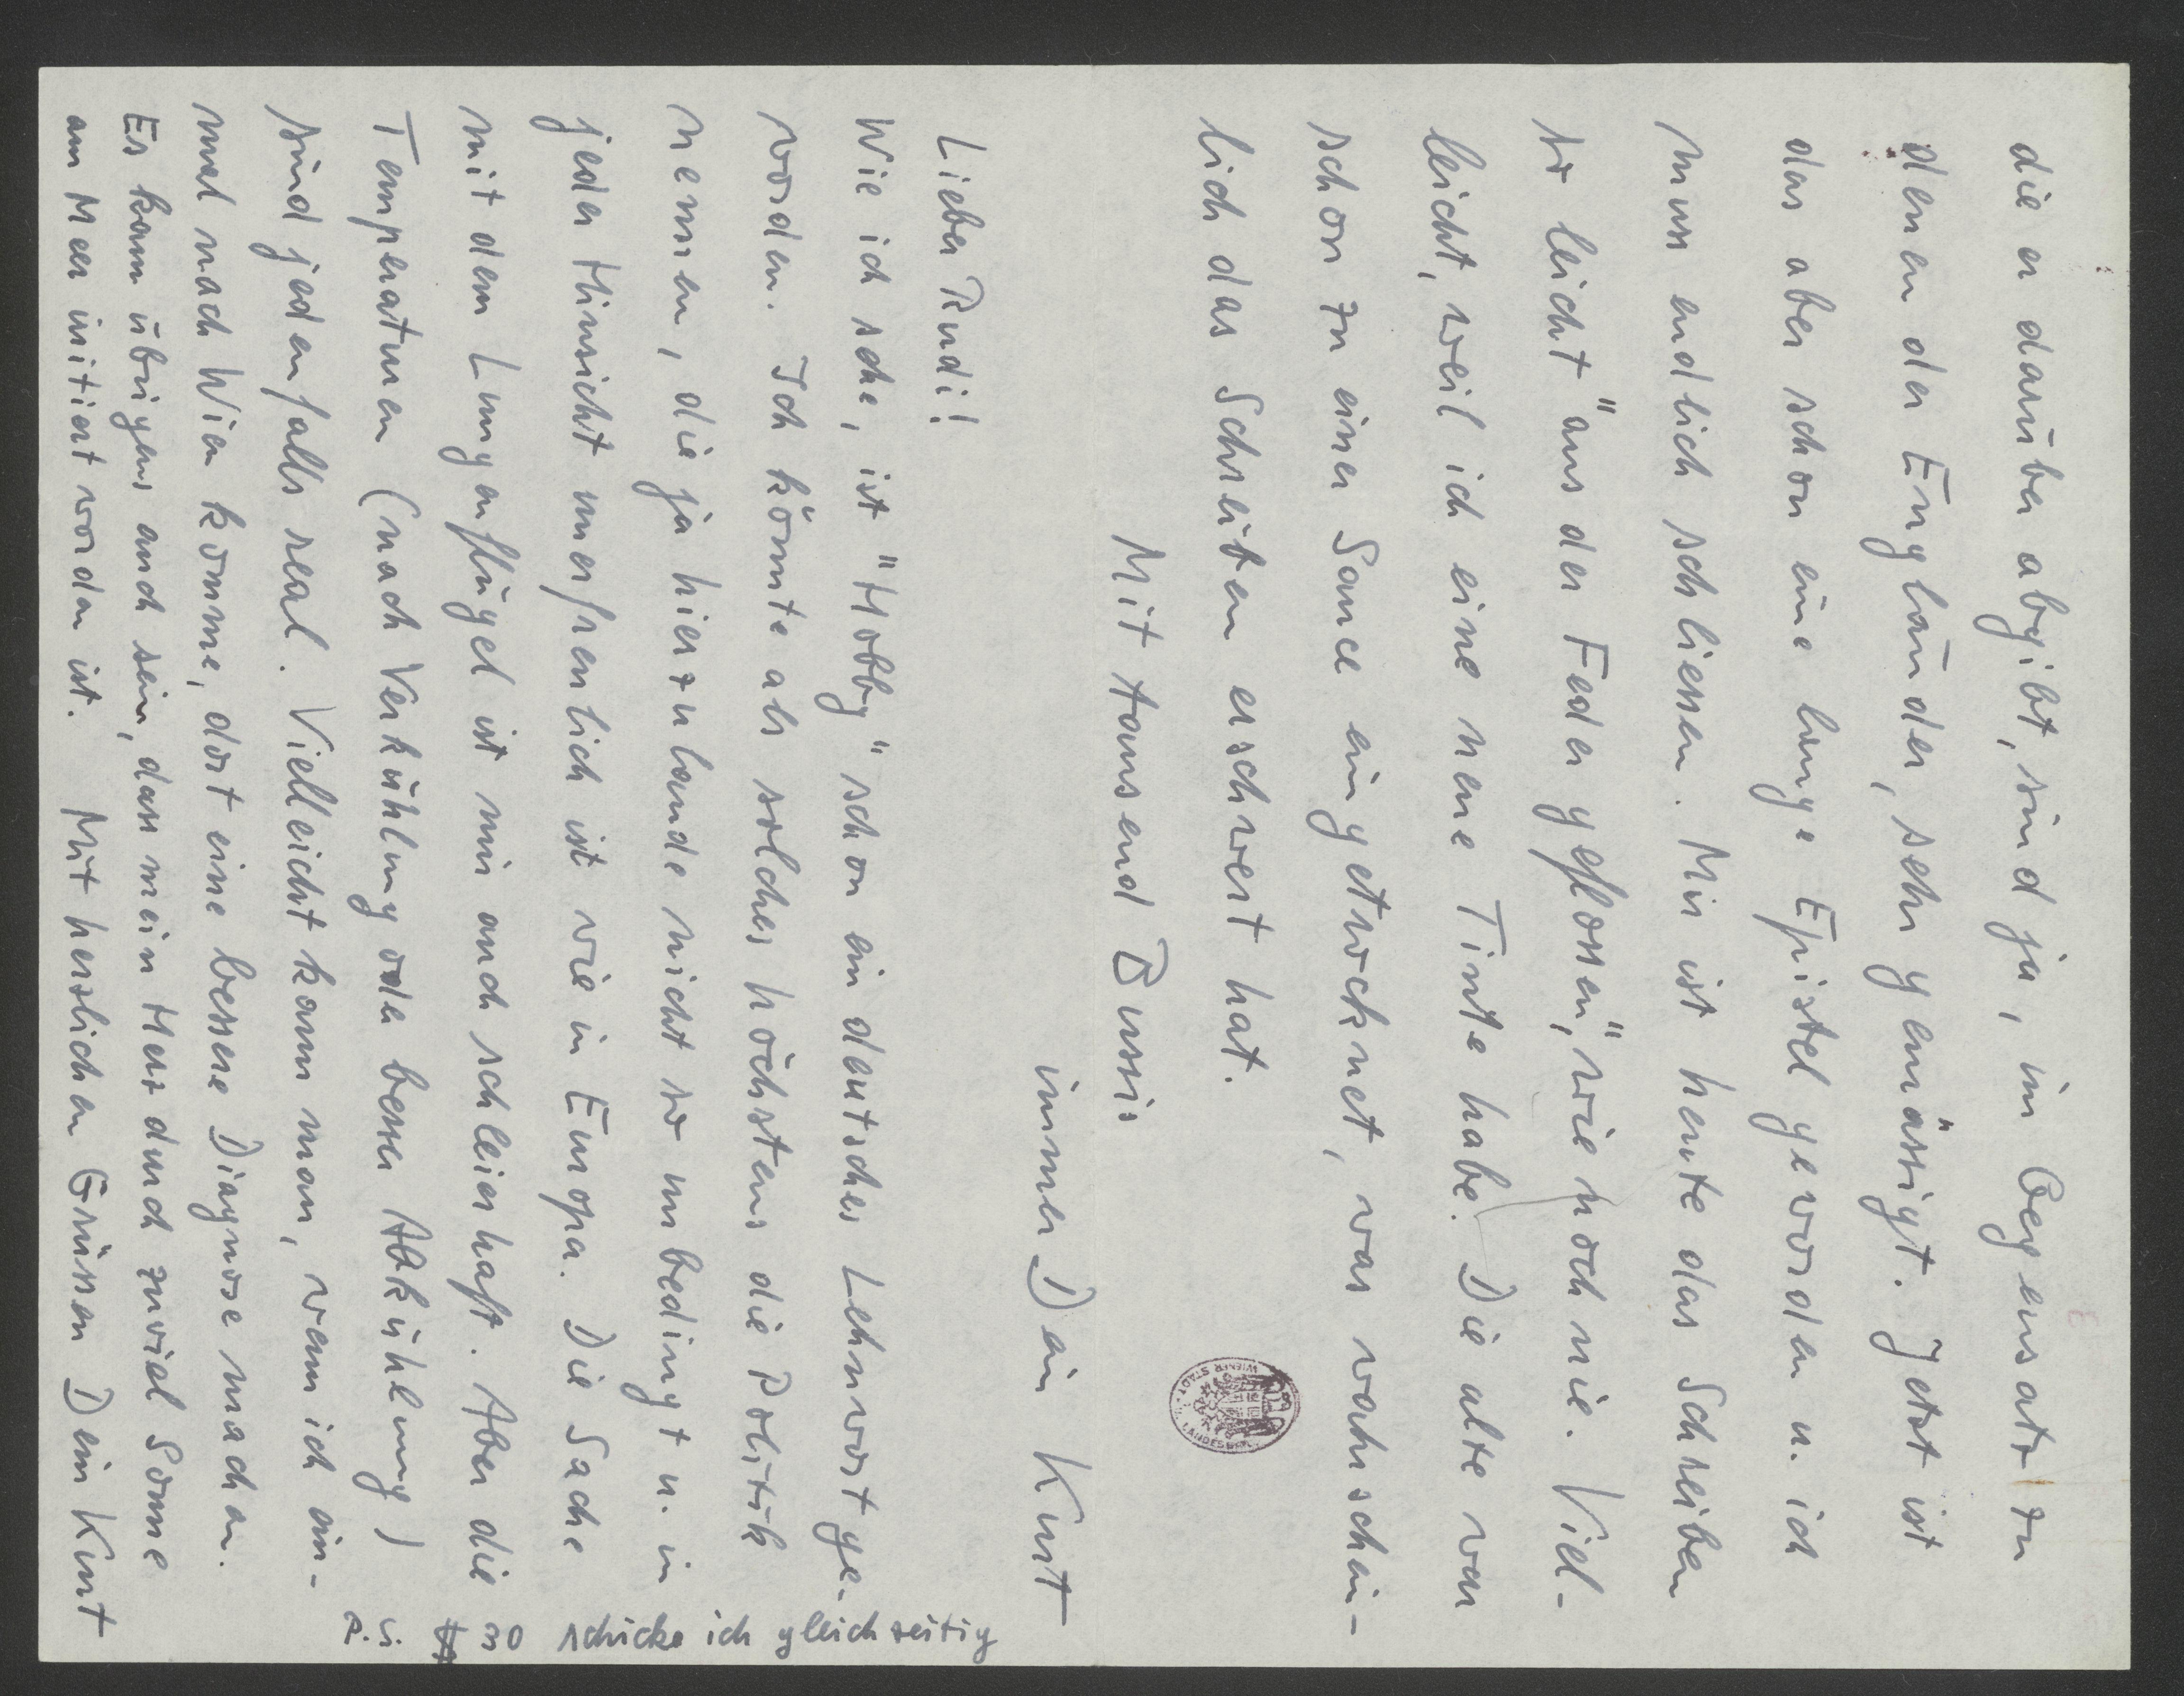 die er darüber abgibt, sind ja, im Gegensatz zu
denen der Engländer, sehr gemässigt. Jetzt ist
das aber schon eine lange Epistel geworden u. ich
muss endlich schliessen. Mir ist heute das Schreiben
so leicht "aus der Feder geflossen", wie noch nie. Viel-
leicht, weil ich eine neue Tinte habe. Die alte war
schon zu einer Sauce eingetrocknet, was wahrschein-
lich das Schreiben erschwert hat.
Mit tausend Bussis
immer Dein Kurt
Lieber Rudi!
Wie ich sehe, ist "Hobby" schon ein deutsches Lehnwort ge-
worden. Ich könnte als solches höchstens die Politik
nennen, die ja hierzulande nicht so unbedingt u. in
jeder Hinsicht unerfreulich ist wie in Europa. Die Sache
mit dem Lungenflügel ist mir auch schleierhaft. Aber die
Temperaturen (nach Verkühlung oder besser Abkühlung)
sind jedenfalls real. Vielleicht kann man, wenn ich ein-
mal nach Wien komme, dort eine bessere Diagnose machen.
Es kann übrigens auch sein, dass mein Herz durch zuviel Sonne
am Meer irritiert worden ist. Mit herzlichen Grüssen Dein Kurt
schicke ich gleichzeitig
WIENER STADT- U. LANDESBIBL.